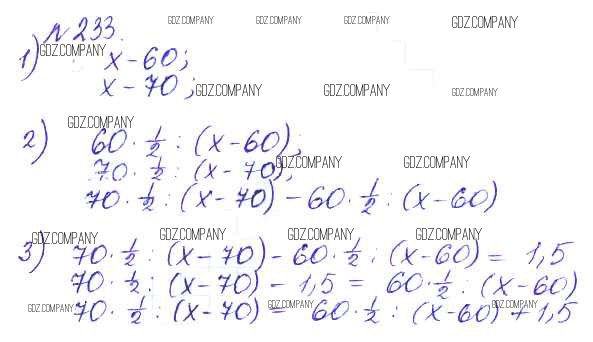 № 233.
GDZ.COMPANY GDZ.COMPANY GDZ.COMPANY GDZ.COMPANY
1) GDZ.COMPANY x - 60;
x - 70; GDZ.COMPANY GDZ.COMPANY GDZ.COMPANY
GDZ.COMPANY
2) 60 · 1/2 : (x - 60);
70 · 1/2 : (x - 70); GDZ.COMPANY GDZ.COMPANY
70 · 1/2 : (x - 70) - 60 · 1/2 : (x - 60)
GDZ.COMPANY GDZ.COMPANY GDZ.COMPANY GDZ.COMPANY
3) 70 · 1/2 : (x - 70) - 60 · 1/2 : (x - 60) = 1,5
70 · 1/2 : (x - 70) - 1,5 = 60 · 1/2 : (x - 60)
GDZ.COMPANY GDZ.COMPANY GDZ.COMPANY
70 · 1/2 : (x - 70) = 60 · 1/2 : (x - 60) + 1,5